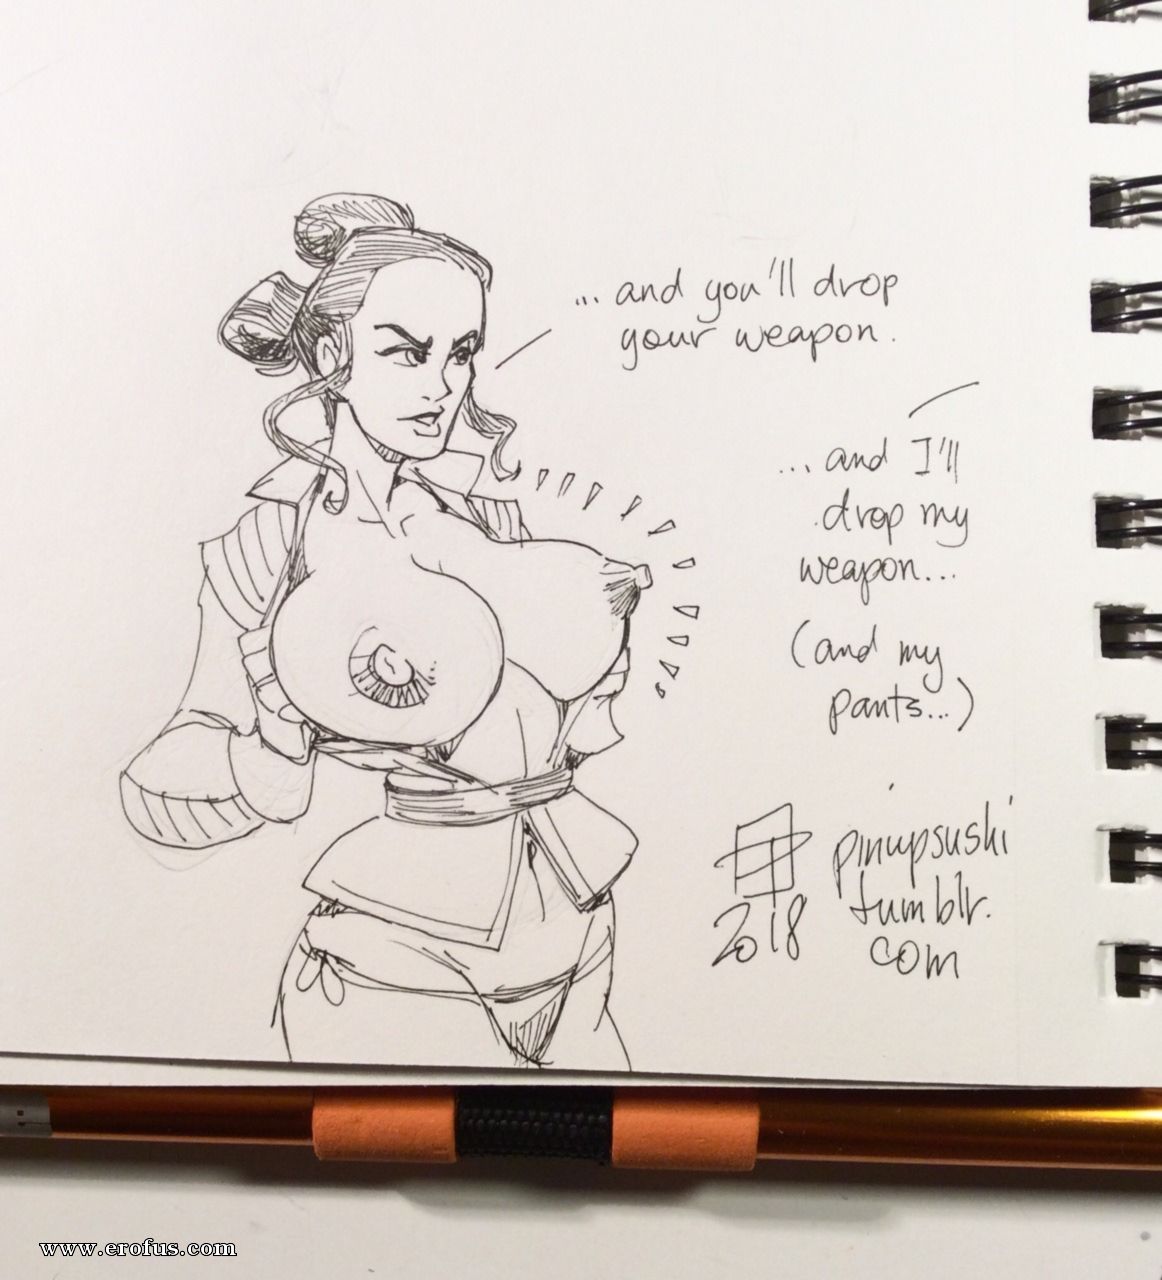 ... and you'll drop
your weapon.
... and I'll
drop my
weapon...
(and my
pants...)
2018
pinupsushi
tumblr.
com
www.erofus.com